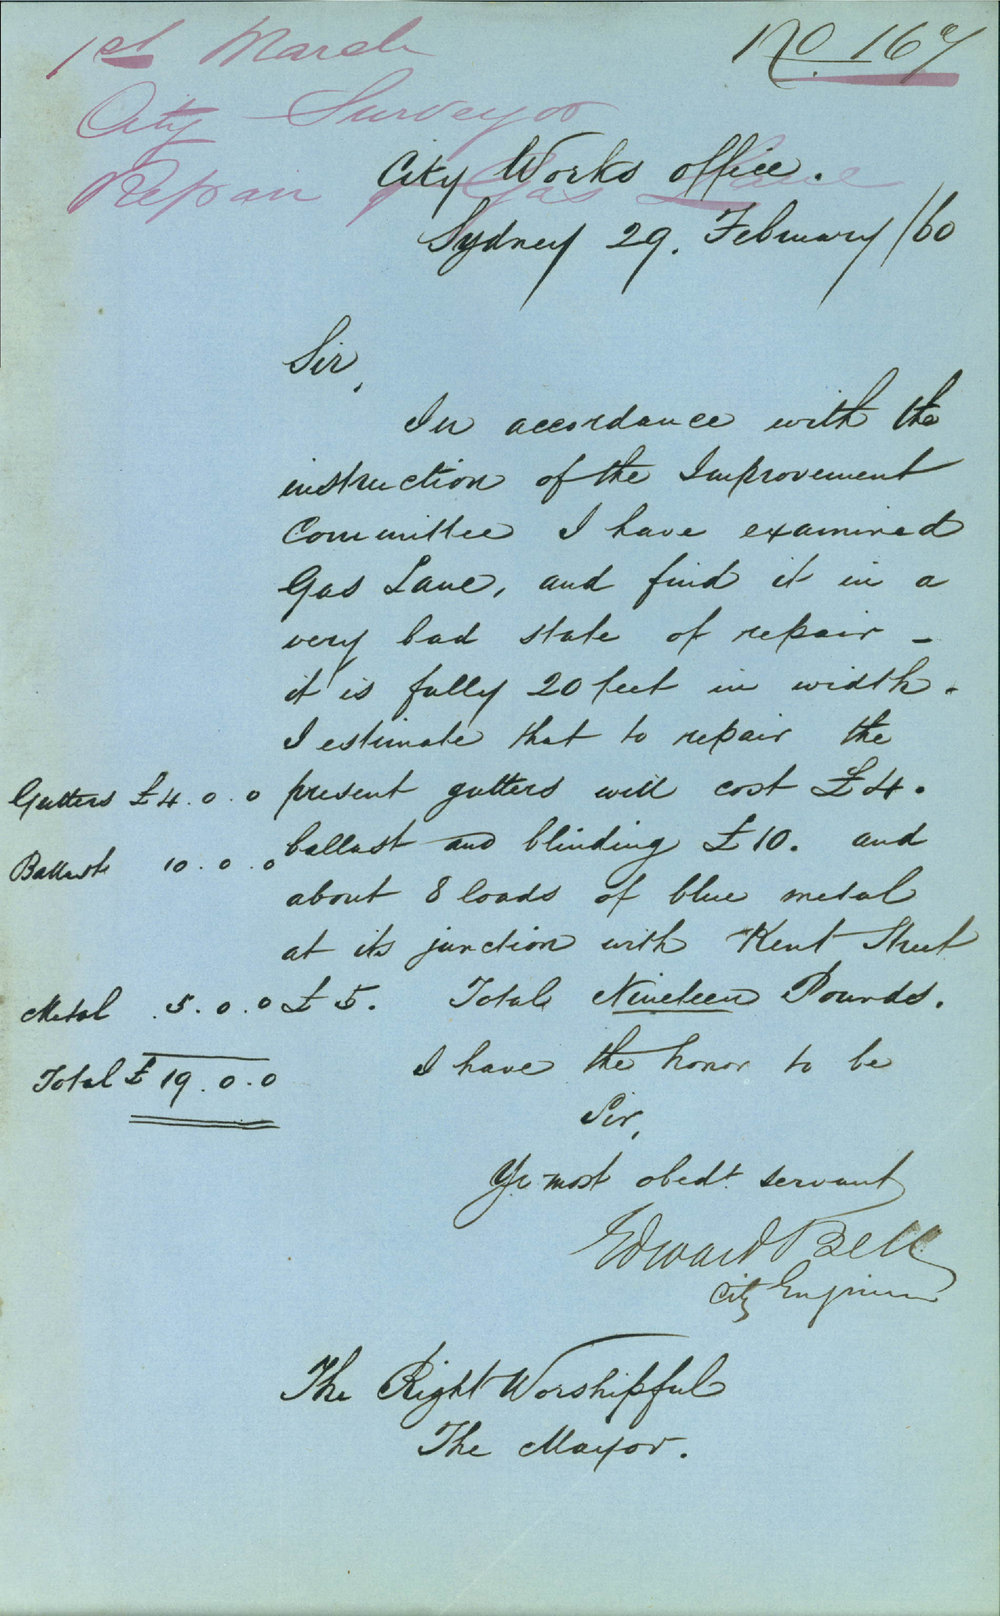 1st March
No. 167
City Surveyor
Repair of Gas Lane
City Works Office.
Sydney 29. February /60
Sir,
In accordance with the
instruction of the Improvement
Committee I have examined
Gas Lane, and find it in a
very bad state of repair –
it is fully 20 feet in width.
I estimate that to repair the
Gutters £4.0.0 present gutters will cost £4.
Ballast 10.0.0 ballast and blinding £10. and
about 8 loads of blue metal
at its junction with Kent Street
Metal 5.0.0 £5. Total Nineteen Pounds.
Total £19.0.0 I have the honor to be
Sir,
Yr. most obedt. servant
Edward Bell
City Engineer
The Right Worshipful
The Mayor.